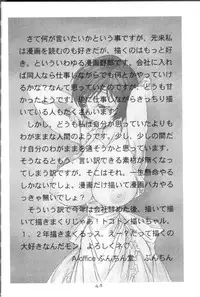 さて何が言いたいかという事ですが、元来私
は漫画を読むのも好きだが、描くのはもっと好
き。といういわゆる漫画野郎です。会社に入れ
ば同人なら仕事しながらでも何とかやっていけ
るかな？なんて思っていたのですが、どうも甘
かったようです。
仕事しながらきっちり描
いている人もたくさんいます。
しかし、どうも私は自分が思っていたよりもわ
がままな人間のようです。少し、少しの間だ
け自分のわがままを通してみようと思います。
そうなるともう、言い訳できる素材が無くなっ
てしまう訳ですが、そこはそれ、一生懸命やる
しかないでしょ。漫画だけ描いて漫画バカやる
っきゃ無いでしょう？
そういう訳で今年は会社辞めた後、描いて描
いて描きまくりじゃあ！トコトン描いちゃる。
１、２年描きまくるっス。えー？だって描くの
大好きなんだモン。よろしくネで
ぶんちん堂 ぶんちん